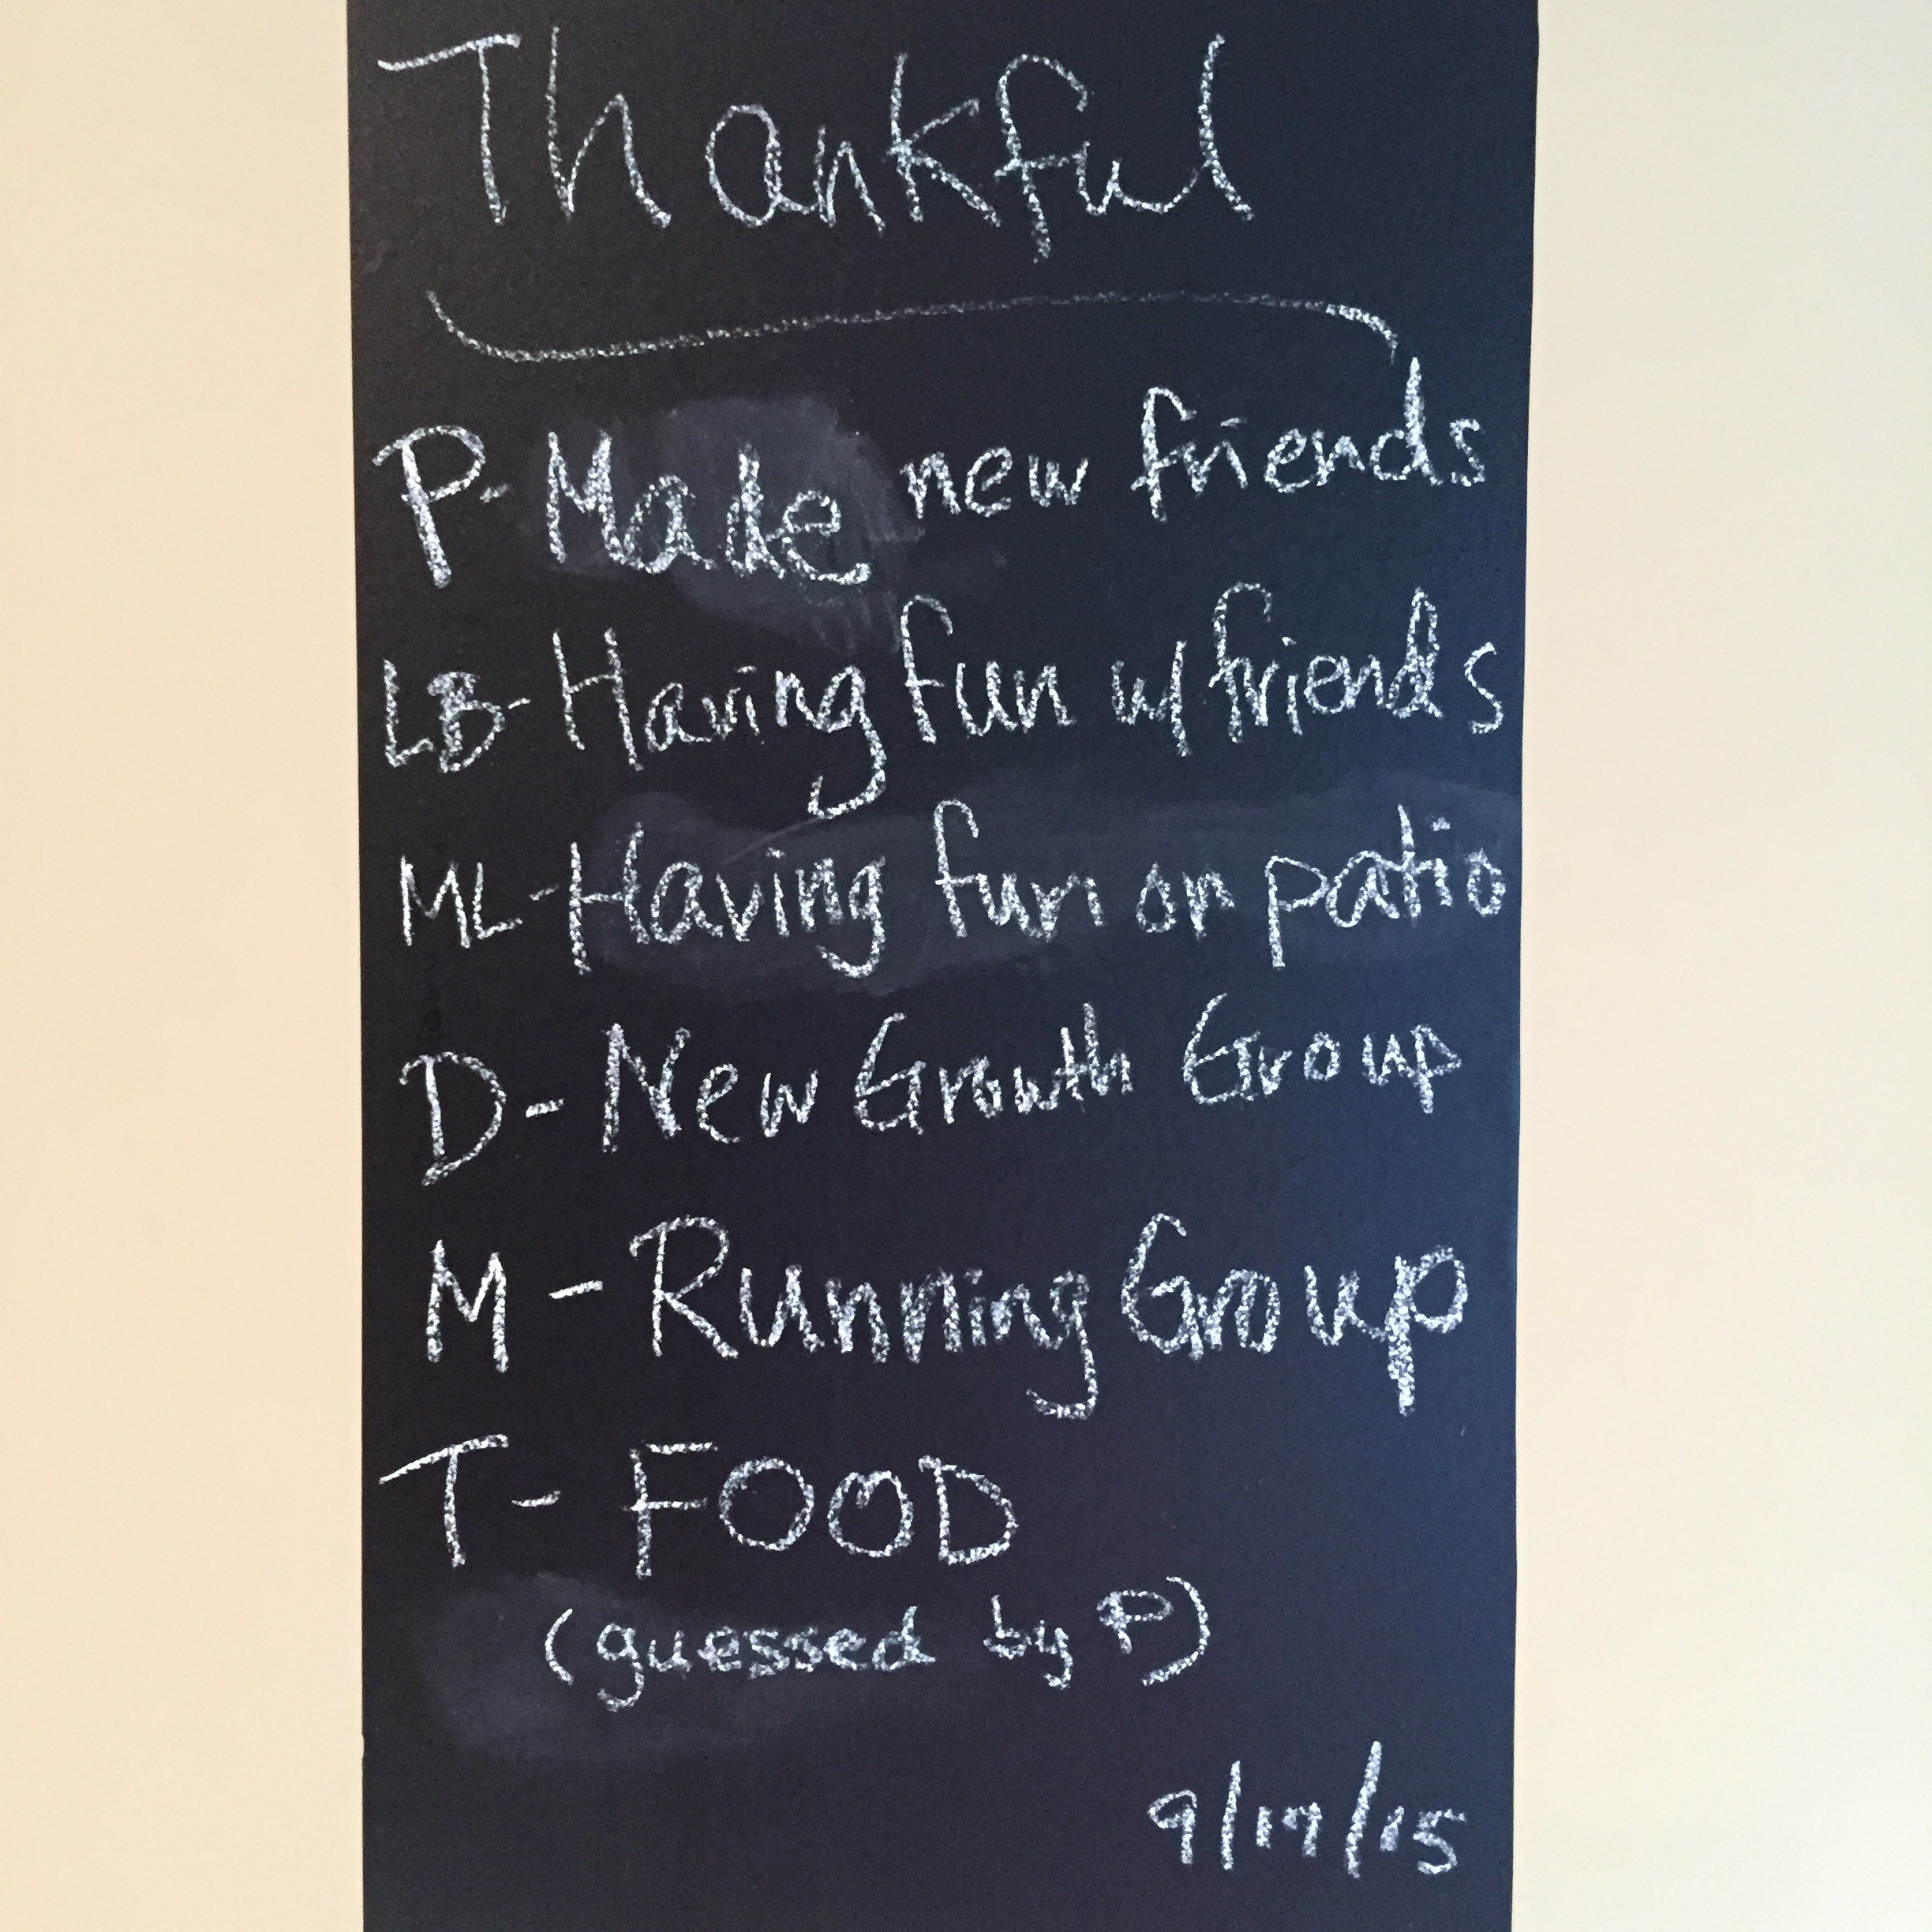 Thankful
P- Made new friends
LB- Having fun w/ friends
ML- Having fun on patio
D- New Growth Group
M- Running Group
T- FOOD
(guessed by P)
9/17/15